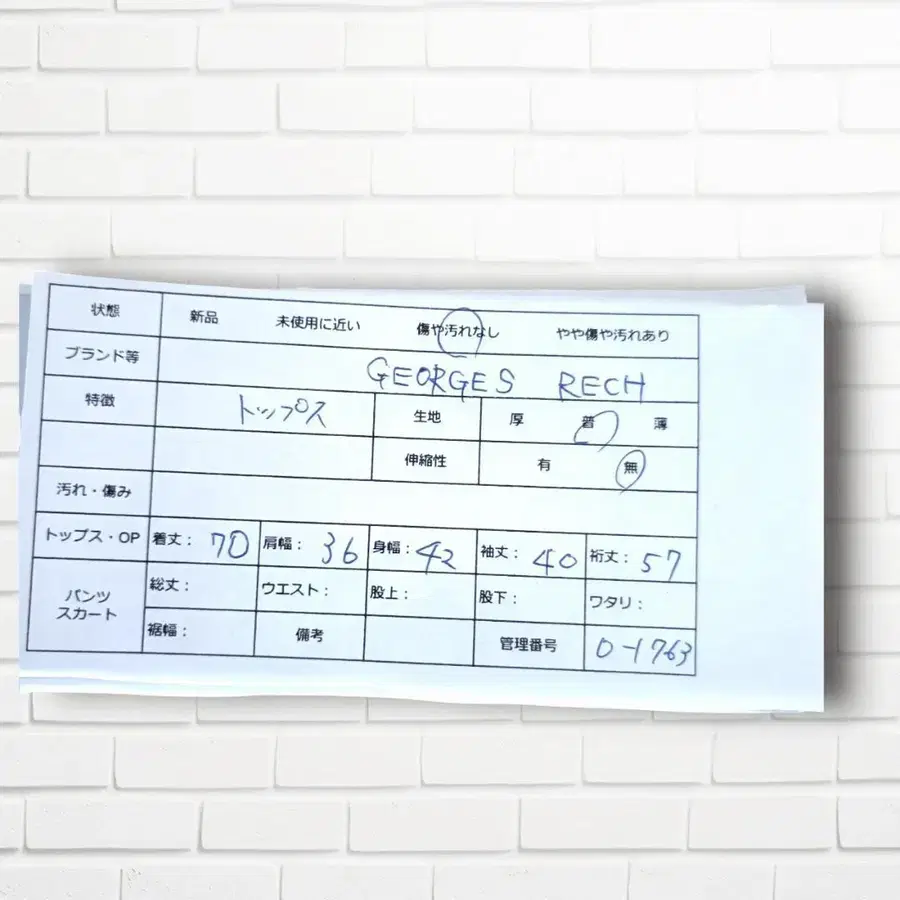 状態 新品 未使用に近い 傷や汚れなし やや傷や汚れあり
ブランド等 GEORGES RECH
特徴 トップス 生地 厚 普 薄
伸縮性 有 無
汚れ・傷み
トップス・OP 着丈： 70 肩幅： 36 身幅： 42 袖丈： 40 裄丈： 57
パンツ スカート 総丈： ウエスト： 股上： 股下： ワタリ：
裾幅： 備考 管理番号 0-1763